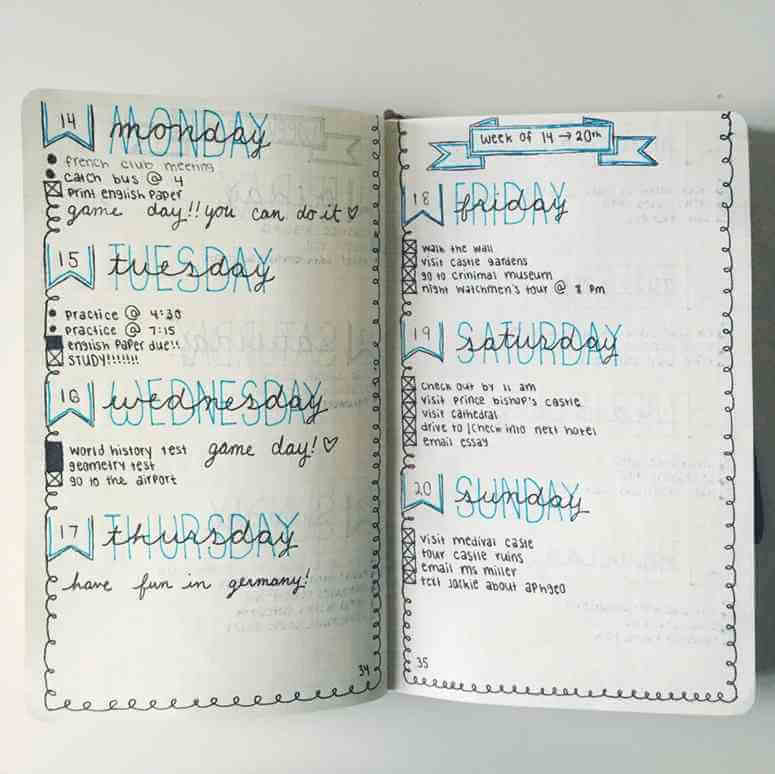 14 MONDAY monday
french club meeting
catch bus @ 4
print english paper
game day!! you can do it ♡
15 TUESDAY tuesday
practice @ 4:30
practice @ 7:15
english paper due!!
STUDY!!!!!!!
16 WEDNESDAY wednesday
world history test game day! ♡
geometry test
go to the airport
17 THURSDAY thursday
have fun in germany!
34
week of 14 → 20th
18 FRIDAY friday
walk the wall
visit castle gardens
go to criminal museum
night watchmen's tour @ 8 pm
19 SATURDAY saturday
check out by 11 am
visit prince bishop's castle
visit cathedral
drive to | check into next hotel
email essay
20 SUNDAY sunday
visit medival casle
tour castle ruins
email ms miller
text jackie about aphgeo
35